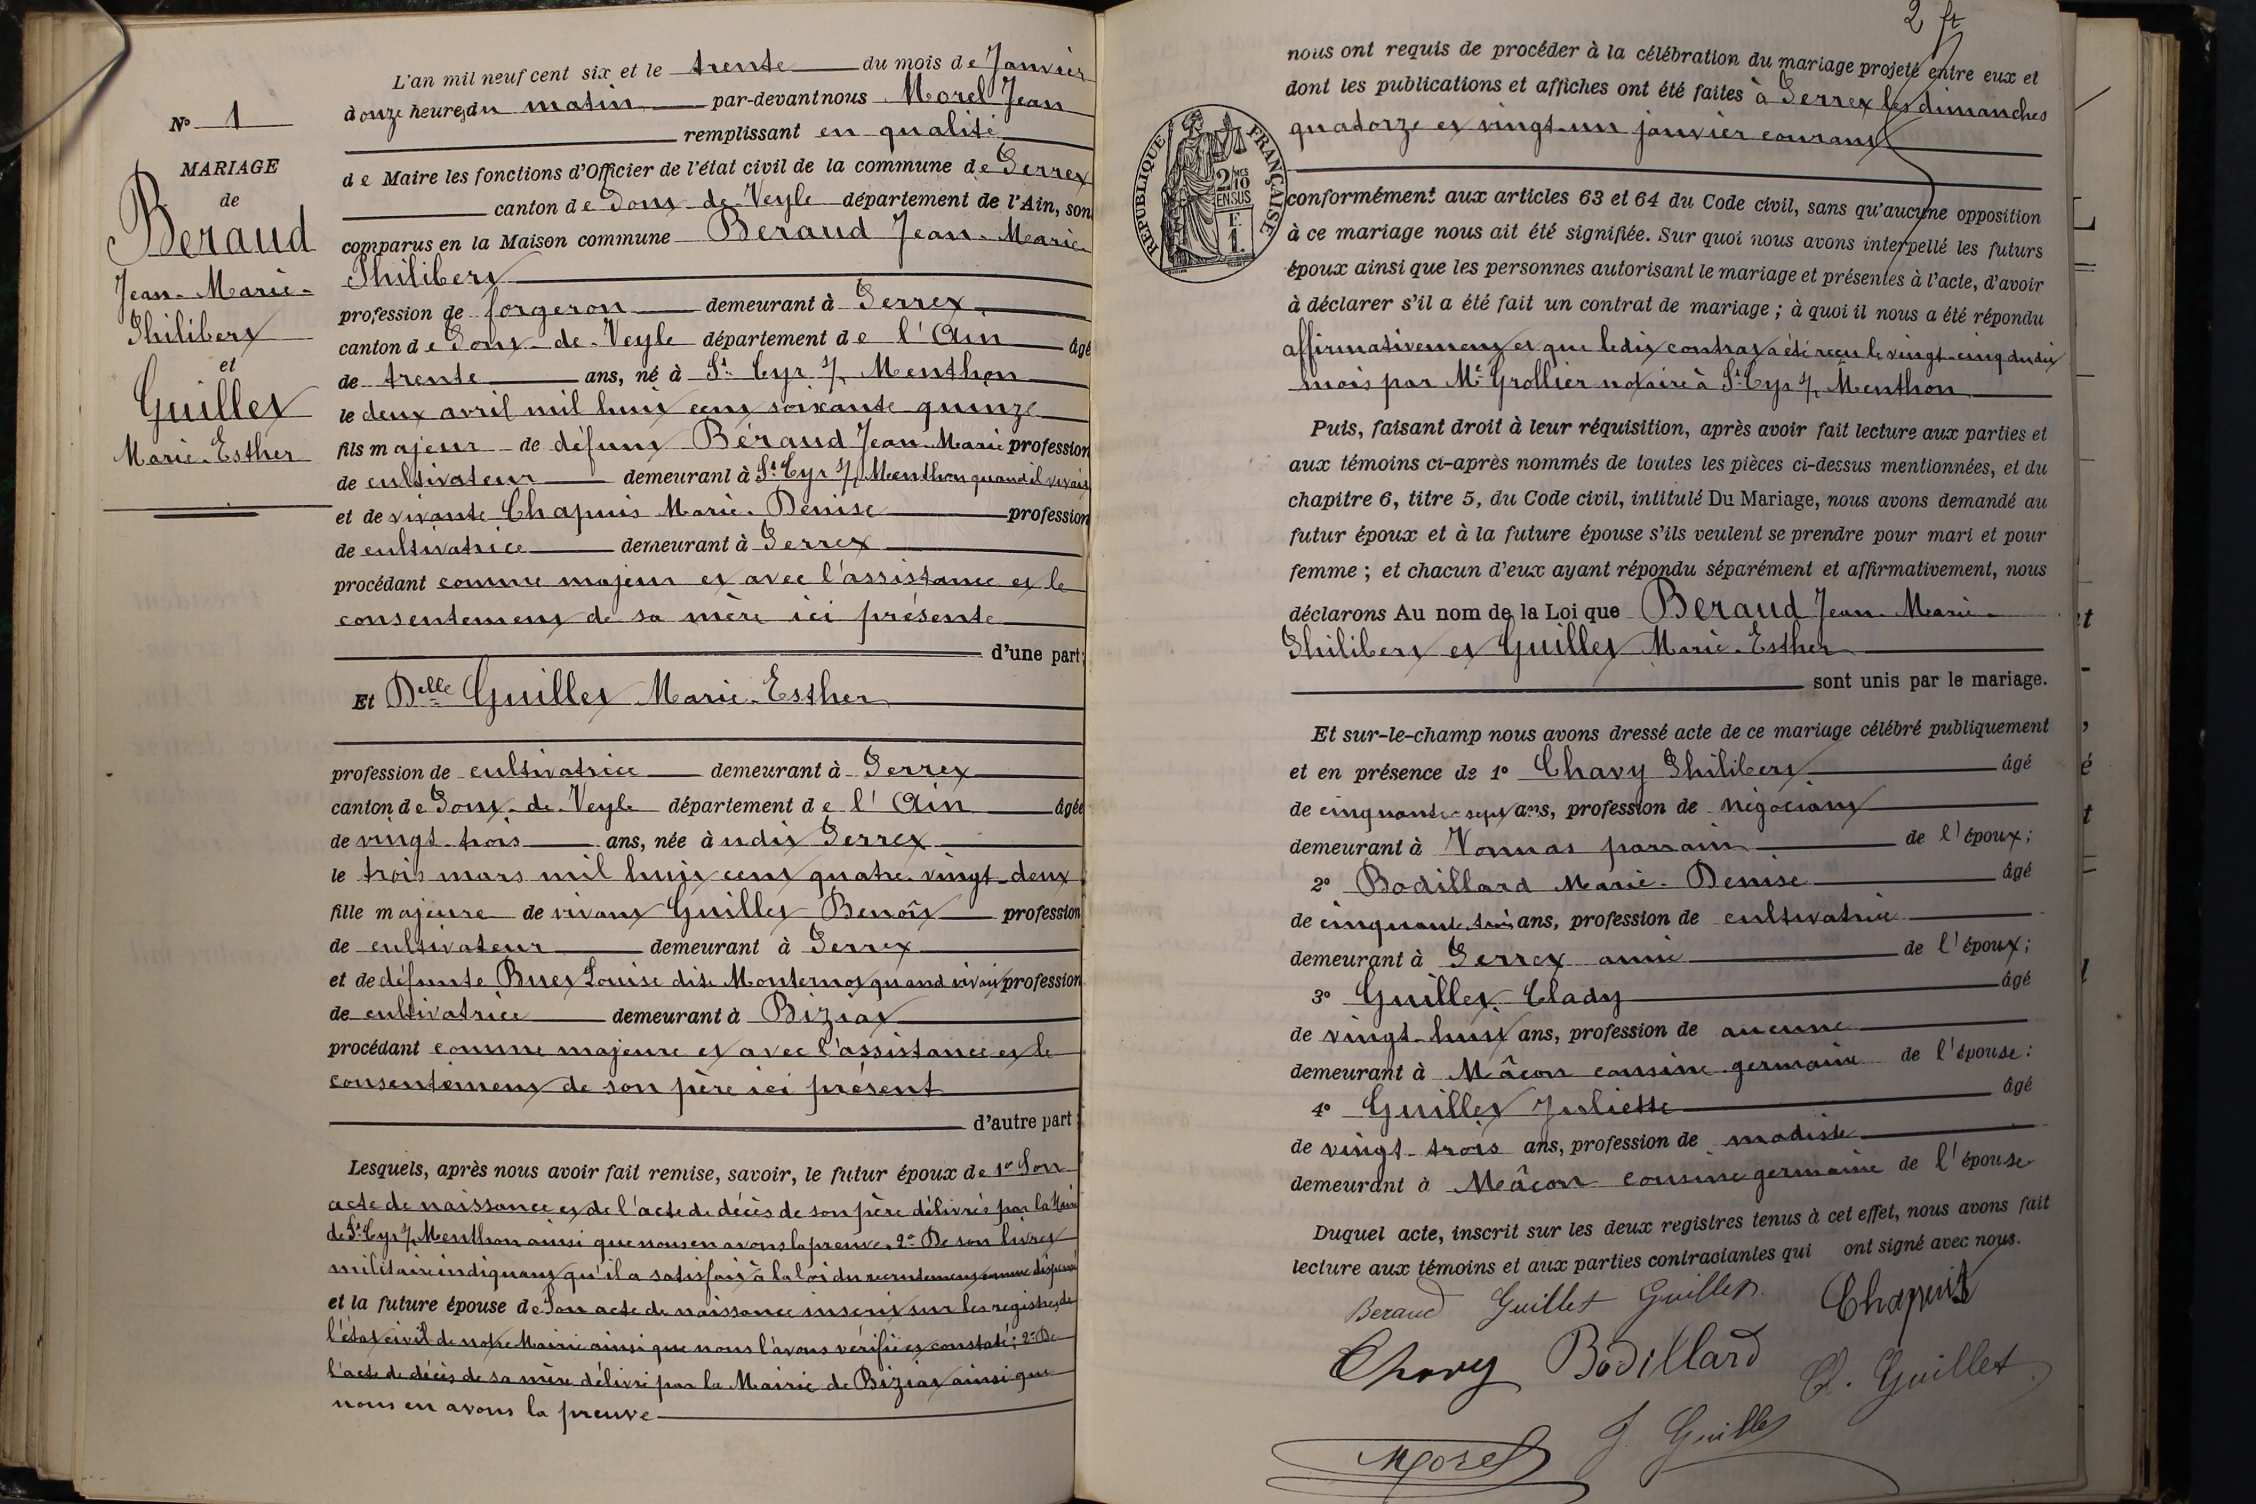 L'an mil neuf cent six et le trente du mois de Janvier
à onze heures du matin par-devant nous Morel Jean
remplissant en qualité
de Maire les fonctions d'Officier de l'état civil de la commune de Perrex
canton de Pont-de-Veyle département de l'Ain, son
comparus en la Maison commune Beraud Jean-Marie-
Philibert
profession de forgeron demeurant à Perrex
canton de Pont-de-Veyle département de l'Ain âgé
de trente ans, né à St. Cyr s/ Menthon
le deux avril mil huit cent soixante quinze
fils majeur de défunt Béraud Jean-Marie profession
de cultivateur demeurant à St Cyr s/ Menthon quand il vivait
et de vivante Chapuis Marie-Denise profession
de cultivatrice demeurant à Perrex
procédant comme majeur et avec l'assistance et le
consentement de sa mère ici présente
d'une part;
Et Delle Guillet Marie-Esther
profession de cultivatrice demeurant à Perrex
canton de Pont-de-Veyle département de l'Ain âgée
de vingt-trois ans, née à udit Perrex
le trois mars mil huit cent quatre-vingt-deux
fille majeure de vivant Guillet Benoît profession
de cultivateur demeurant à Perrex
et de défunte Buet Louise dite Monternot quand vivait profession
de cultivatrice demeurant à Biziat
procédant comme majeure et avec l'assistance et le
consentement de son père ici présent
d'autre part;
Lesquels, après nous avoir fait remise, savoir, le futur époux de 1° Son
acte de naissance et de l'acte de décès de son père délivrés par la Mairie
de St Cyr s/ Menthon ainsi que nous en avons la preuve. 2° De son livret
militaire indiquant qu'il a satisfait à la loi du recrutement comme dispensé
et la future épouse de Son acte de naissance inscrit sur les registres de
l'état civil de notre Mairie ainsi que nous l'avons vérifié et constaté; 2° De
l'acte de décès de sa mère délivré par la Mairie de Biziat ainsi que
nous en avons la preuve
N° 1
MARIAGE
de
Beraud
Jean-Marie-
Philibert
et
Guillet
Marie-Esther
2 ft
nous ont requis de procéder à la célébration du mariage projeté entre eux et
dont les publications et affiches ont été faites à Perrex les dimanches
quatorze et vingt-un janvier courant
RÉPUBLIQUE FRANÇAISE
2/10 MES
EN SUS
F.
1.
conformément aux articles 63 et 64 du Code civil, sans qu'aucune opposition
à ce mariage nous ait été signifiée. Sur quoi nous avons interpellé les futurs
époux ainsi que les personnes autorisant le mariage et présentes à l'acte, d'avoir
à déclarer s'il a été fait un contrat de mariage; à quoi il nous a été répondu
affirmativement et que ledit contrat a été reçu le vingt-cinq du dit
mois par Me Grollier notaire à St Cyr s/ Menthon
Puis, faisant droit à leur réquisition, après avoir fait lecture aux parties et
aux témoins ci-après nommés de toutes les pièces ci-dessus mentionnées, et du
chapitre 6, titre 5, du Code civil, intitulé Du Mariage, nous avons demandé au
futur époux et à la future épouse s'ils veulent se prendre pour mari et pour
femme; et chacun d'eux ayant répondu séparément et affirmativement, nous
déclarons Au nom de la Loi que Beraud Jean-Marie-
Philibert et Guillet Marie-Esther
sont unis par le mariage.
Et sur-le-champ nous avons dressé acte de ce mariage célébré publiquement
et en présence de 1° Chavy Philibert âgé
de cinquante-sept ans, profession de négociant
demeurant à Vonnas parrain de l'époux;
2° Bodillard Marie-Denise âgé
de cinquante-trois ans, profession de cultivatrice
demeurant à Perrex amie de l'époux;
3° Guillet Clady âgé
de vingt-huit ans, profession de aucune
demeurant à Mâcon cousine germaine de l'épouse:
4° Guillet Juliette âgé
de vingt-trois ans, profession de modiste
demeurant à Mâcon cousine germaine de l'épouse
Duquel acte, inscrit sur les deux registres tenus à cet effet, nous avons fait
lecture aux témoins et aux parties contractantes qui ont signé avec nous.
Beraud Guillet Guillet Chapuis
Chavy Bodillard Cl. Guillet
Morel J. Guillet